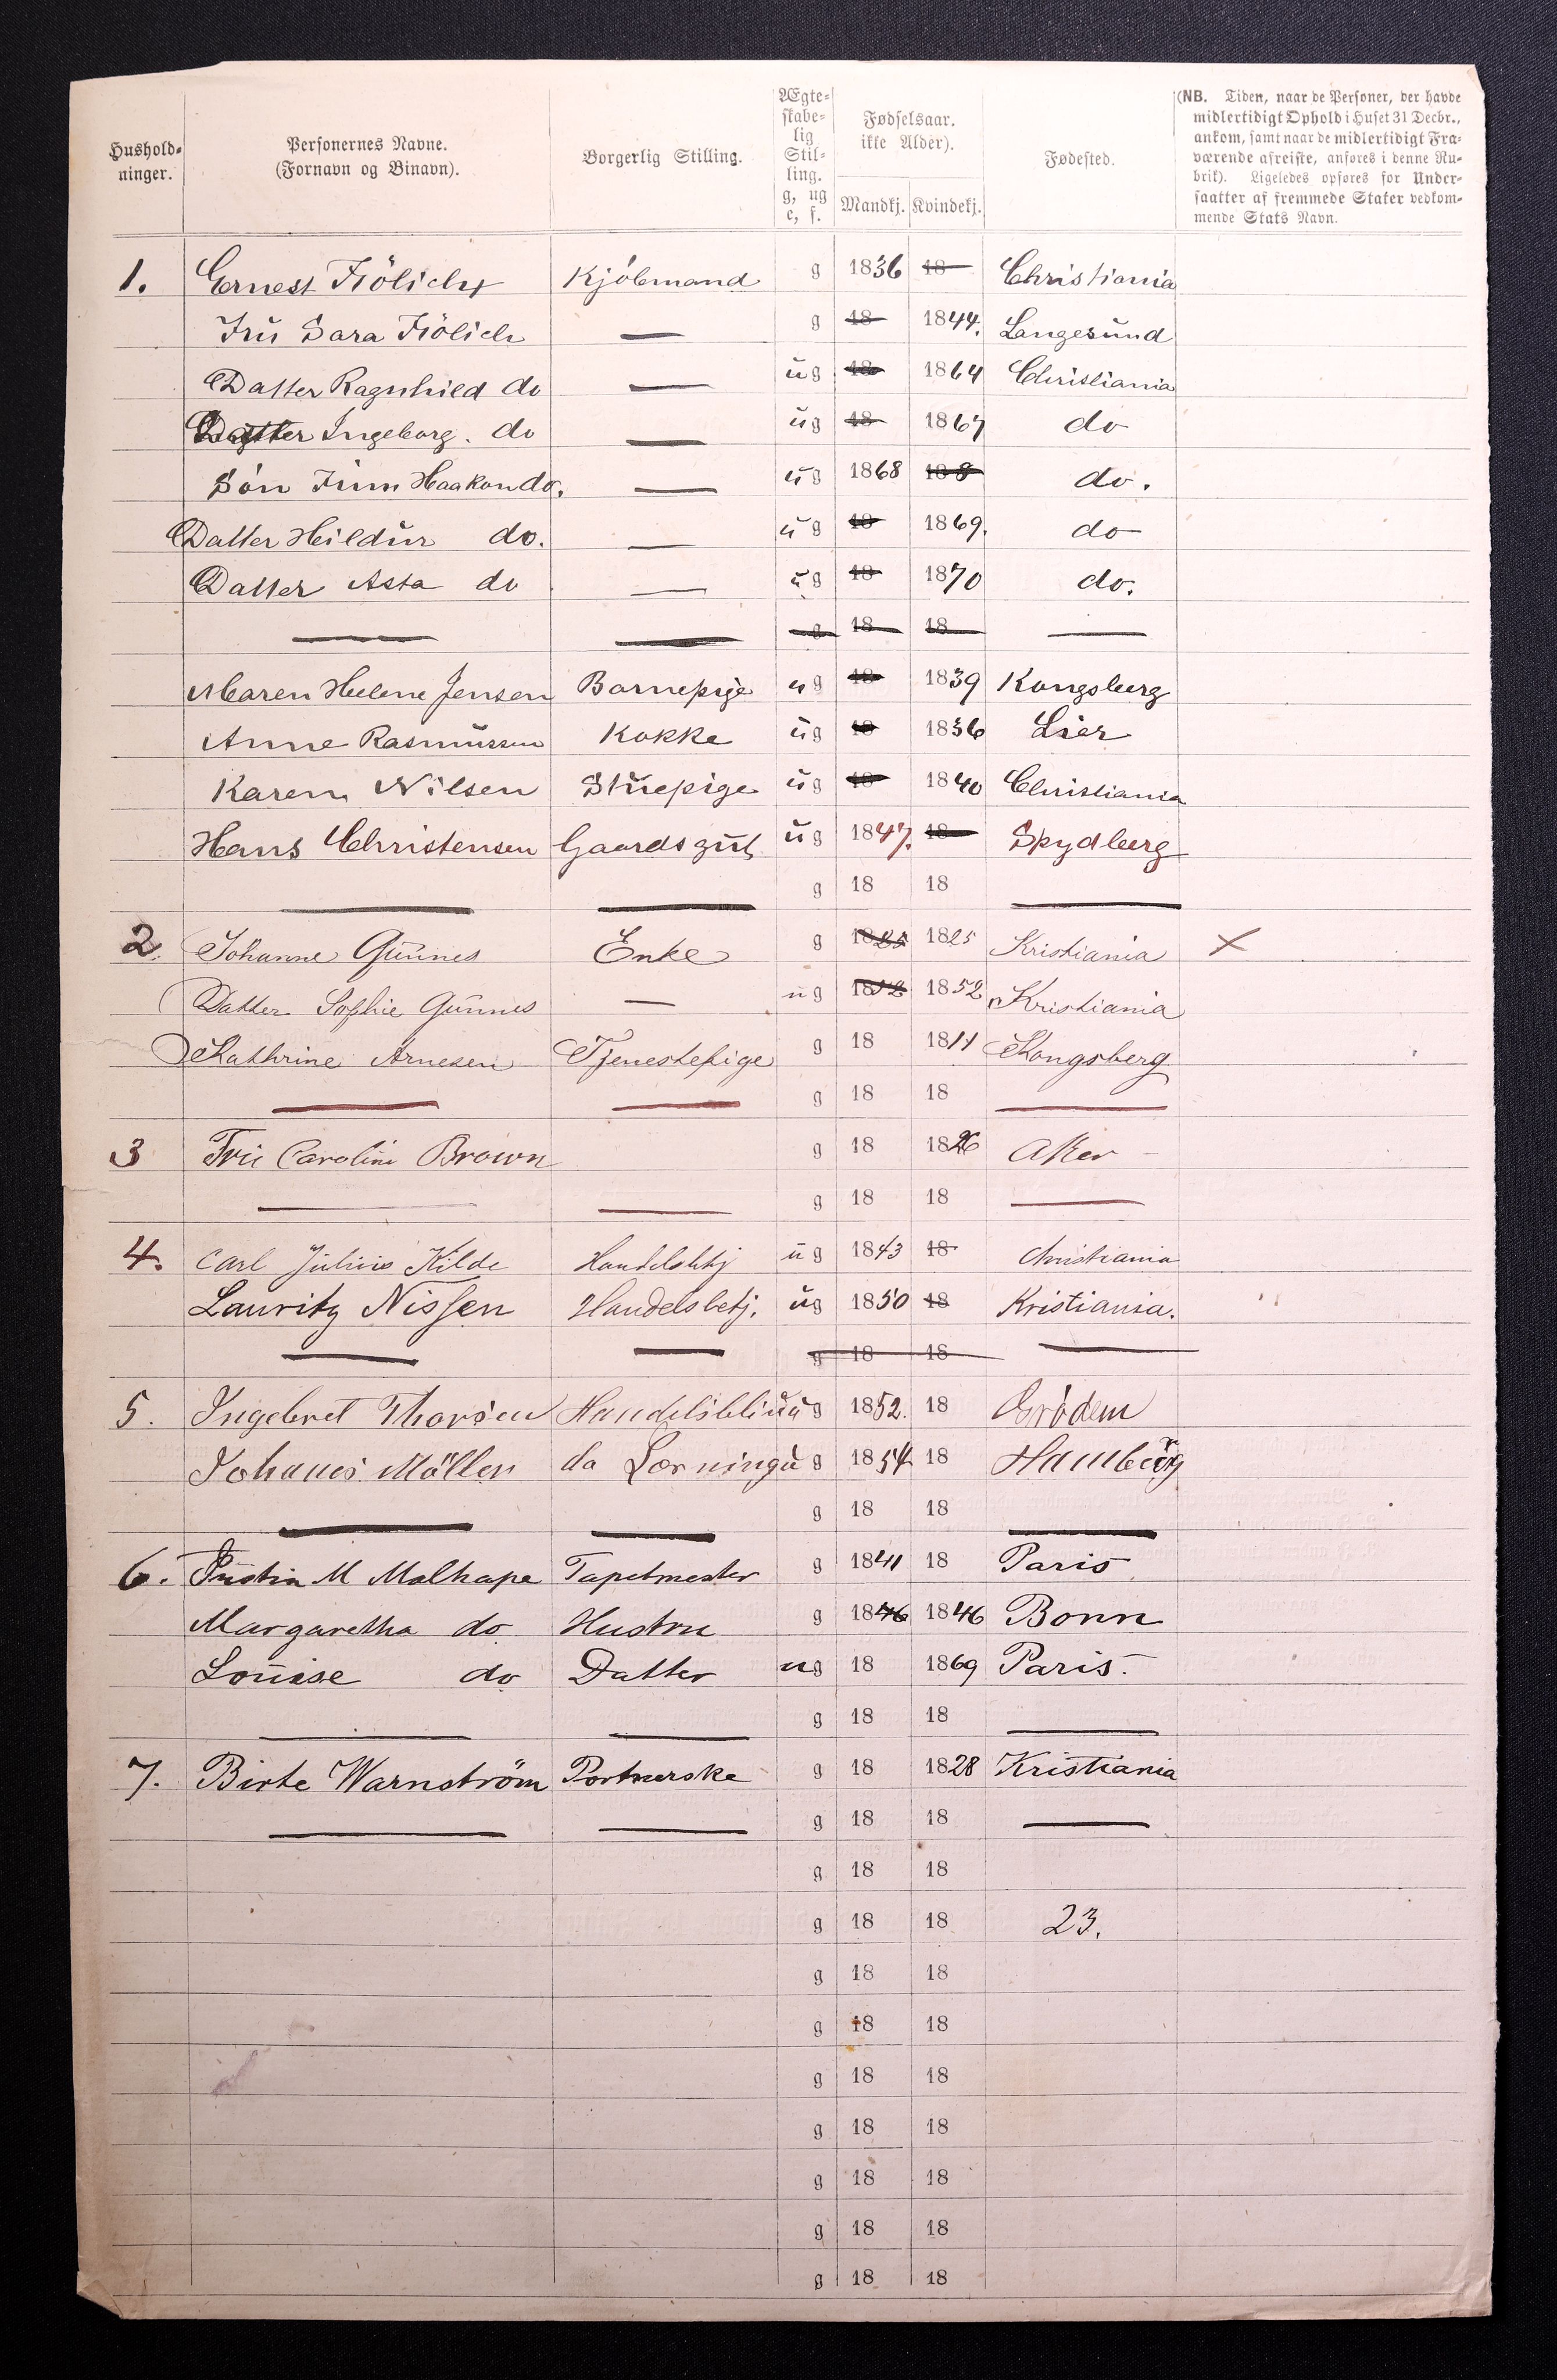 Hushold-
ninger.
Personernes Navne.
(Fornavn og Binavn).
Borgerlig Stilling.
Ægte-
skabe-
lig
Stil-
ling.
g, ug
e, f.
Fødselsaar.
ikke Alder).
Mandkj. Kvindekj.
Fødested.
(NB. Tiden, naar de Personer, der havde
midlertidigt Ophold i Huset 31 Decbr.,
ankom, samt naar de midlertidigt Fra-
værende afreiste, anføres i denne Ru-
brik). Ligeledes opføres for Under-
saatter af fremmede Stater vedkom-
mende Stats Navn.
1. Ernest Frölich Kjöbmand g 1836 18 Christiania
Fru Sara Frölich — g 18 1844. Langesund
Datter Ragnhild do — ug 18 1864 Christiania
Datter Ingeborg. do — ug 18 1867 do
Sön Finn Haakon do. — ug 1868 18 do.
Datter Hildur do. — ug 18 1869. do
Datter Asta do — ug 18 1870 do.
— — g 18 18 —
Maren Helene Jensen Barnepige ug 18 1839 Kongsberg
Anne Rasmussen Kokke ug 18 1836 Lier
Karen Nilsen Stuepige ug 18 1840 Christiania
Hans Christensen Gaardsgut ug 1847. 18 Spydberg
— — g 18 18 —
2. Johanne Gunnes Enke g 1825 1825 Kristiania X
Datter Sophie Gunnes — ug 1852 1852 Kristiania
Kathrine Arnesen Tjenestepige g 18 1811 Kongsberg
— — g 18 18 —
3 Fru Caroline Brown g 18 1826 Aker
— — g 18 18 —
4. Carl Julius Kilde Handelsbtj ug 1843 18 Christiania
Lauritz Nissen Handelsbetj. ug 1850 18 Kristiania.
— — g 18 18 —
5. Ingebret Thorsen ug 1852. 18
Johanes Möller do ug 1854 18 Hamburg
— — g 18 18 —
6. Justin M Malhape Tapetmester g 1841 18 Paris
Margaretha do Hustru g 1846 1846 Bonn
Louise do Datter ug 18 1869 Paris.
— — g 18 18 —
7. Birte Warnström Portnerske g 18 1828 Kristiania
— — g 18 18 —
g 18 18
g 18 18 23.
g 18 18
g 18 18
g 18 18
g 18 18
g 18 18
g 18 18
g 18 18